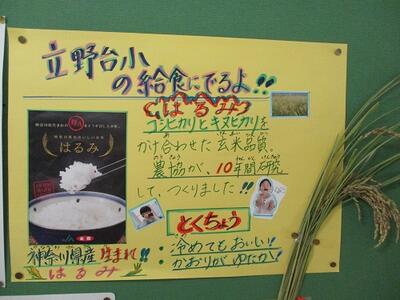 立野台小
の給食にでるよ!!
はるみ
コシヒカリとキヌヒカリを
かけ合わせた玄米品質。
農協が、10年間研究
して、つくりました!!
とくちょう
・冷めてもおいしい!
・かおりがゆたか!
はるみ
神奈川県産 生まれ!!
はるみ